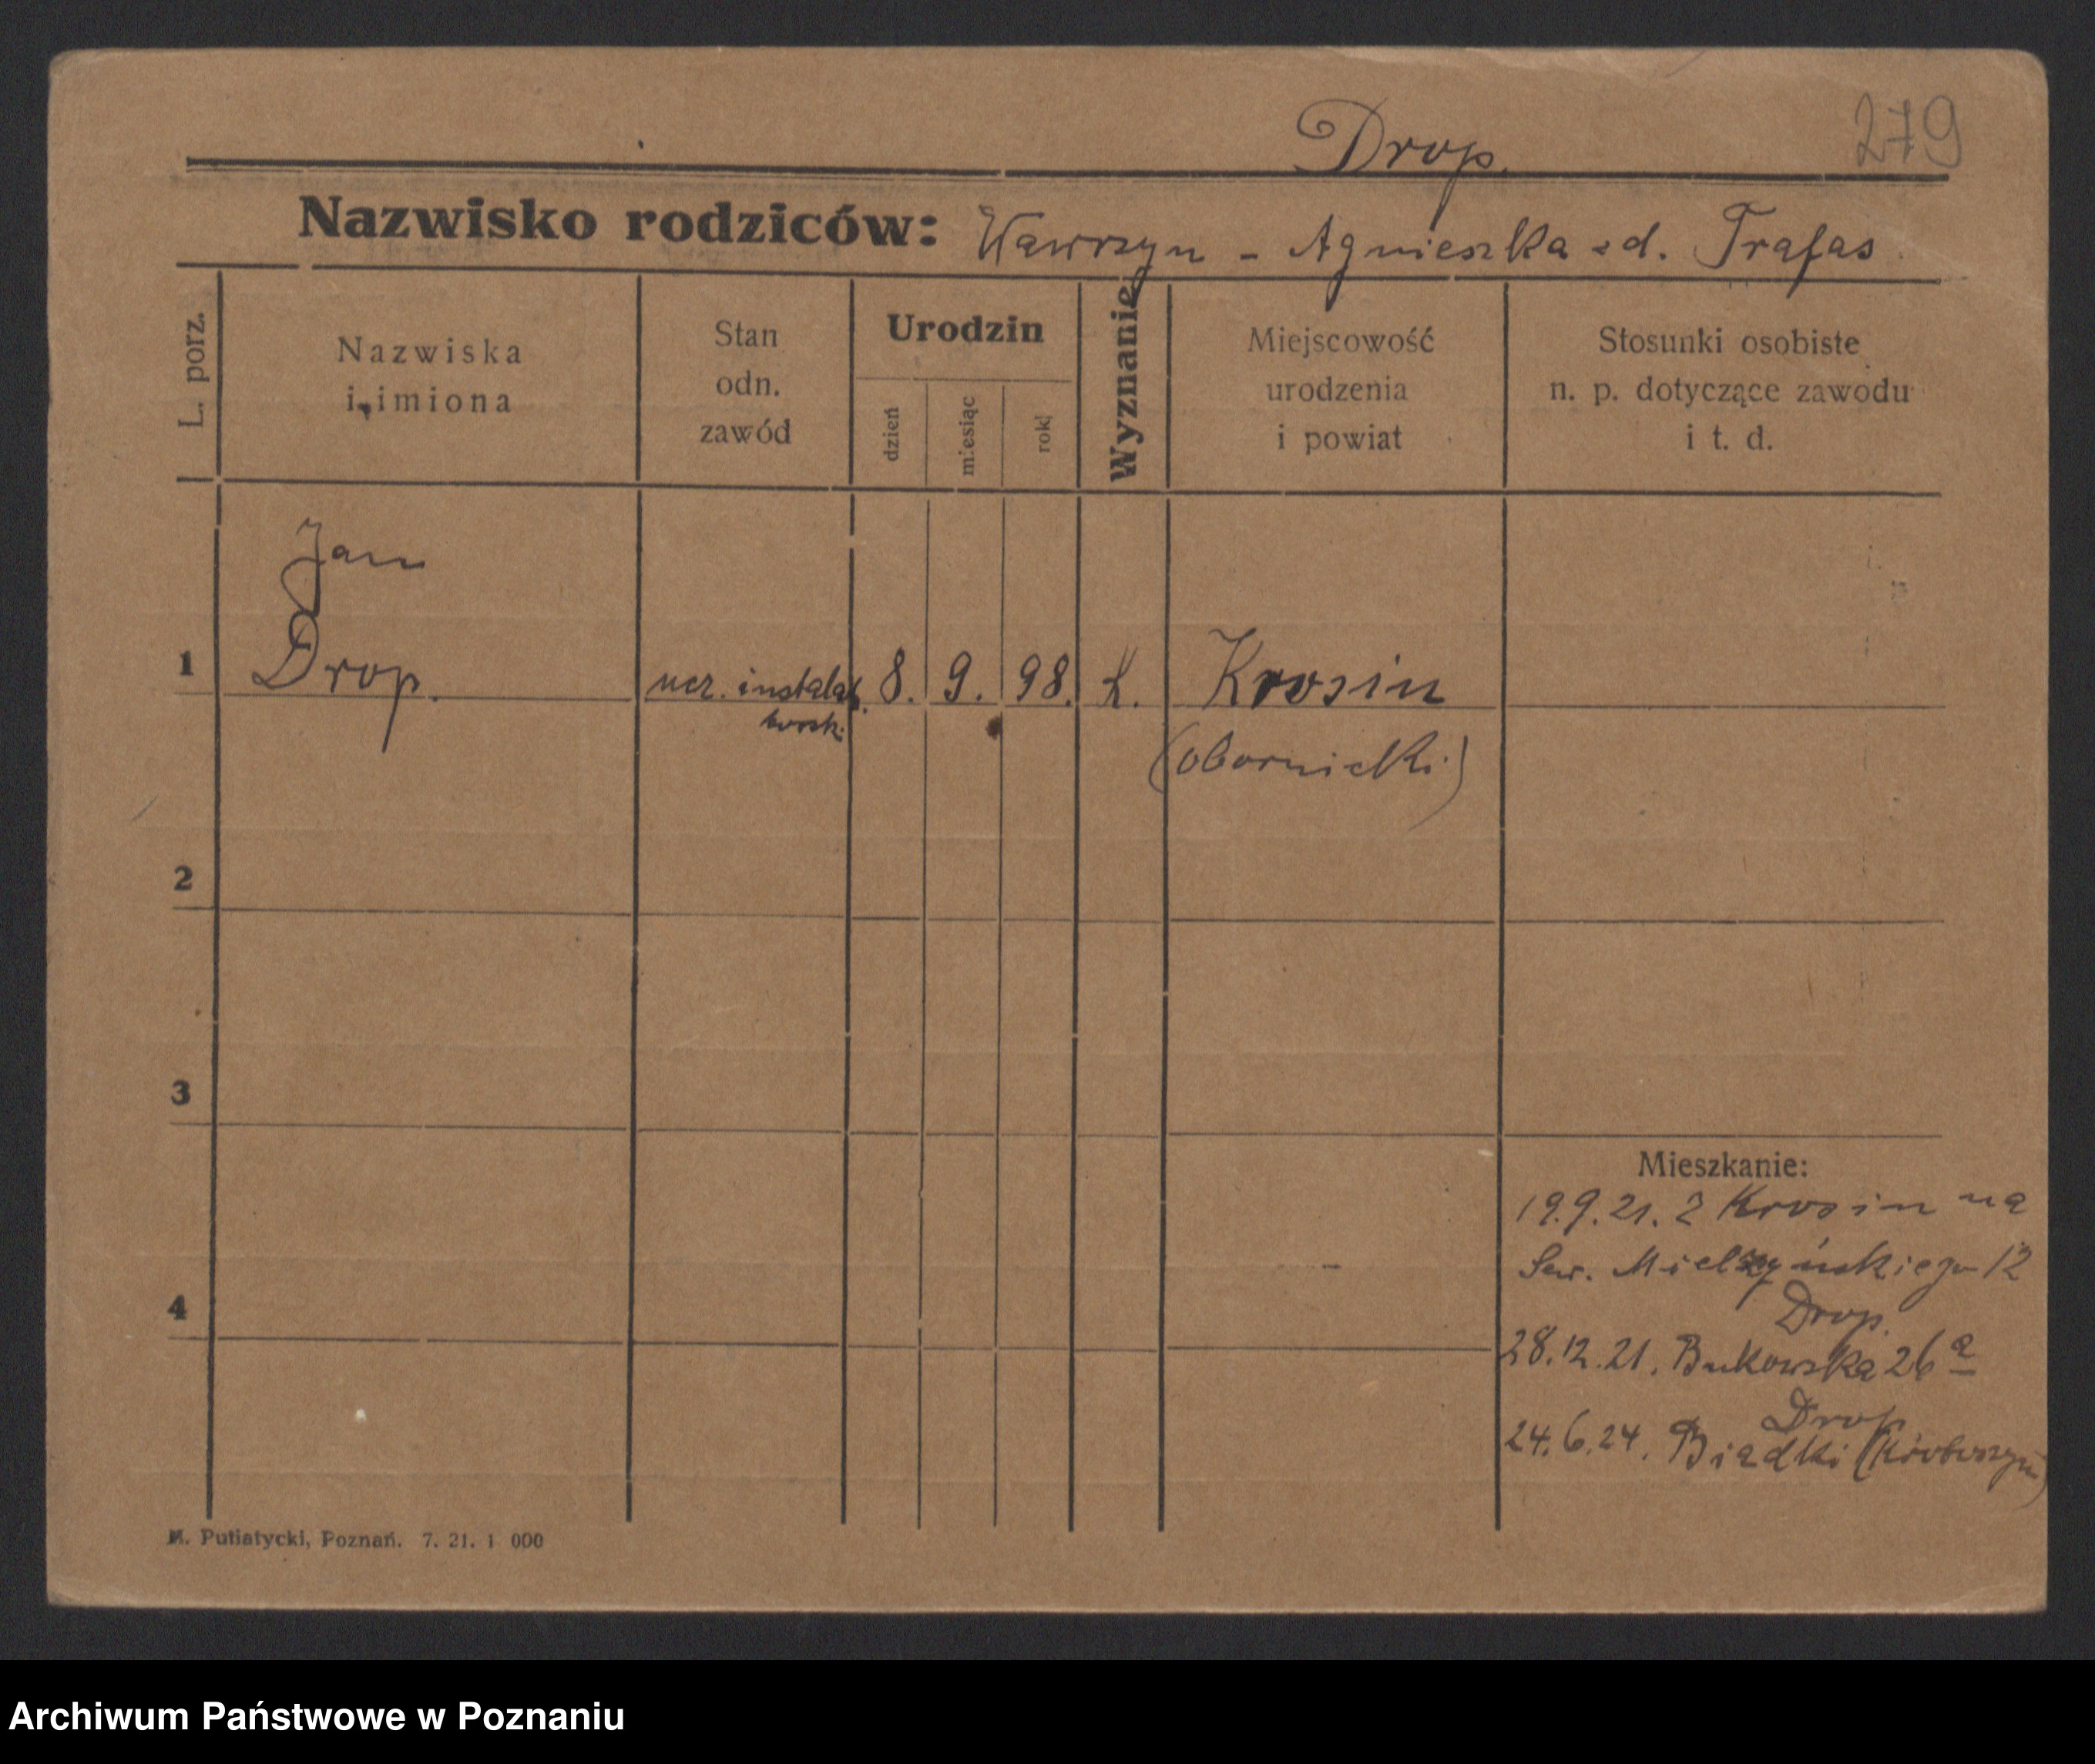 279
Drop.
Nazwisko rodziców: Wawrzyn - Agnieszka zd. Trafas
L. porz.
Nazwiska
i imiona
Stan
odn.
zawód
Urodzin
dzień
miesiąc
rok
Wyznanie
Miejscowość
urodzenia
i powiat
Stosunki osobiste
n. p. dotyczące zawodu
i t. d.
Jan
1 Drop. ucz. instalat. 8. 9. 98. k. Krosin
torsk.
(obornicki)
2
3
Mieszkanie:
19.9.21. z Krosin na
Sew. Mielżyńskiego 12
4
Drop.
28.12.21. Bukowska 26a
Drop
24.6.24. Biadki (Krotoszyn)
M. Putiatycki, Poznań. 7. 21. 1 000
Archiwum Państwowe w Poznaniu